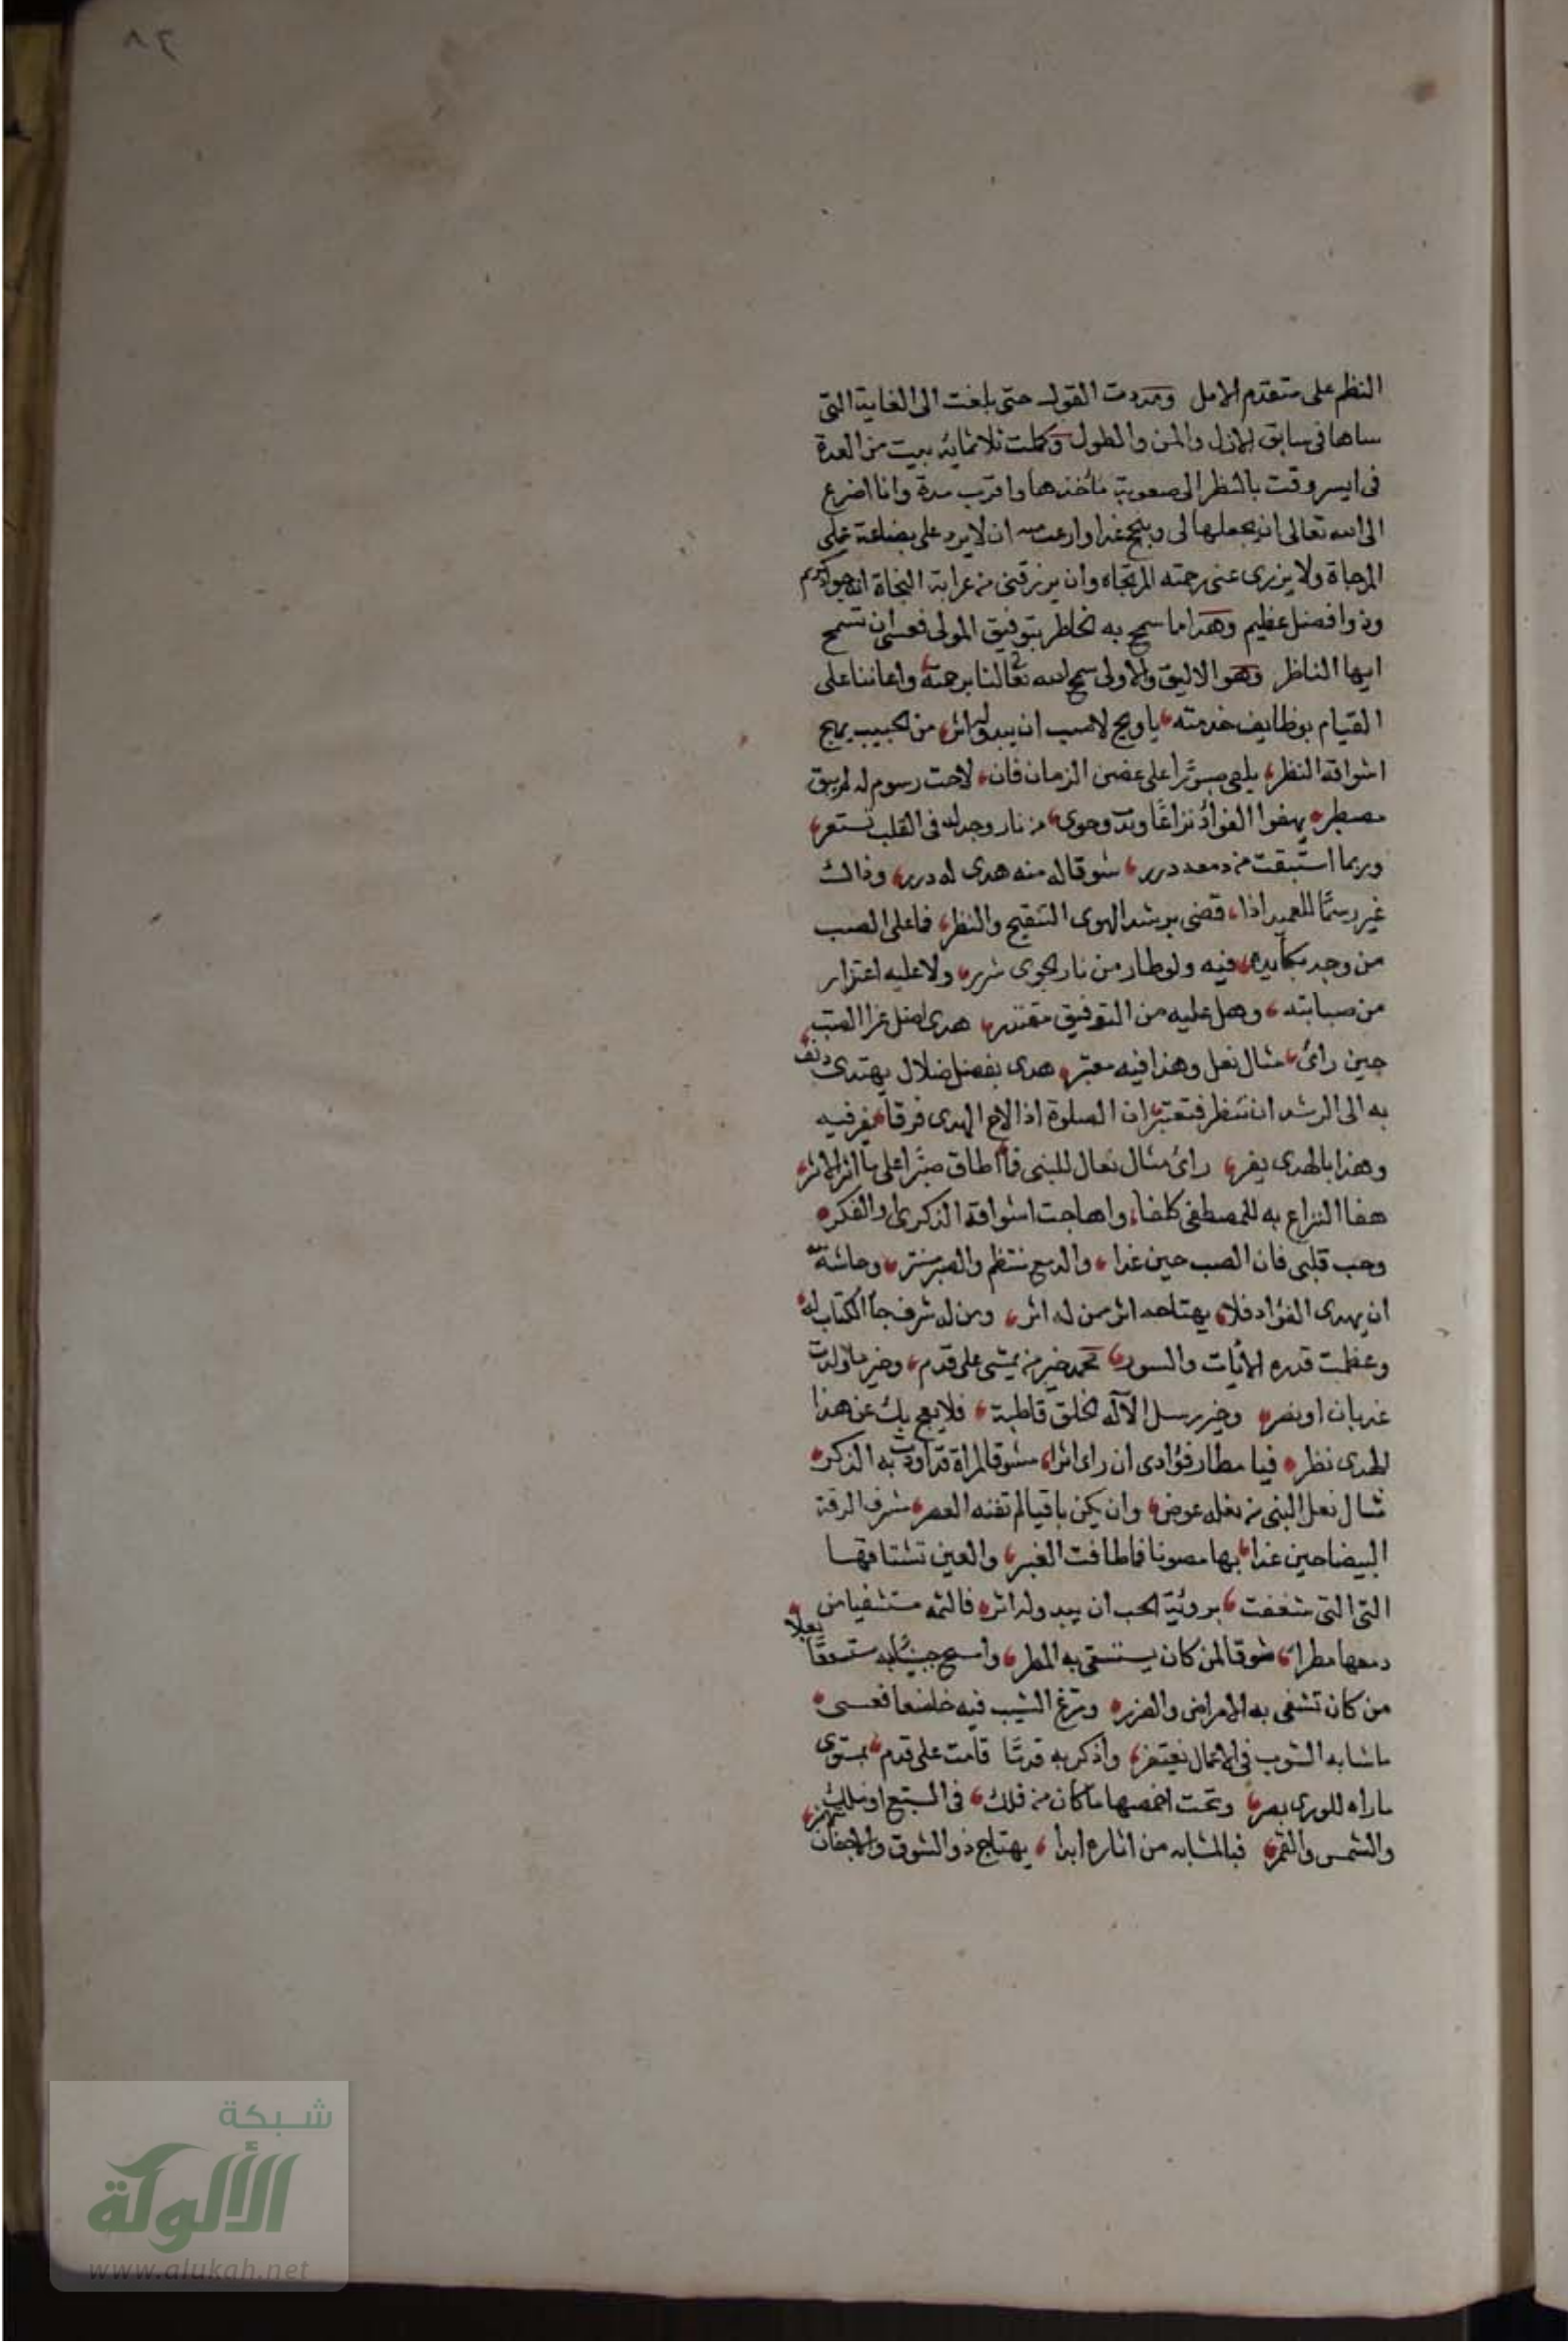 ٨٤
النظم على متقدم الامل ومددت القول حتى بلغت الى الغاية التى
ساها فى سابق الازل والمن والطول وكملت ثلاثمايه بيت من العدة
فى ايسر وقت بالنظر الى صعوبة مأخذها واقرب مدة وانا اضرع
الى الله تعالى ان يجعلها لى وينجح غدا وارعب منه ان لا يرد على بضاعة عملى
المزجاة ولا يزرى عنى رحمته المرتجاه وان يرزقنى من عرابة النجاة انه جواد كريم
وذوا فضل عظيم وهذا ما سمح به الخاطر بتوفيق المولى فعسى ان تسمح
ايها الناظر وهو الاليق والاولى سمح الله تعالى لنا برحمته واعاننا على
القيام بوظايف خدمته يا ويح لاصب ان يبدو له اثر من الحبيب يهاج
اشواقه النظر يلفى صبورا على عض الزمان فان لاحت رسوم له لم يبق
مصطبر يهفوا الفواد نزاعا وبه وجوى من نار وجد له فى القلب تستعر
وربما استبقت من دمعه درر شوقا له منه هدى له درر وذالك
غير رسما للعميد اذا قضى برشد الهوى التنقيح والنظر فما على الصب
من وجد يكابده فيه ولو طار من نار الجوى شرر ولا عليه اعتزار
من صبابته وهل عليه من التوفيق مقتدر هدى لضل غرا الصب
حين رائ مثال نعل وهذا فيه معتبر هدى بفضل ضلال يهتدى دنف
به الى الرشد ان تنظر فتعتبر ان الصلوة اذا لاح الهدى فرقا يفر فيه
وهذا بالهدى يفر رائ مثال نعال للنبى فما اطاق صبرا على ما اثر الاثر
هفا النزاع به للمصطفى كلفا واهاجت اشواقه الذكرى والفكر
وحب قلبى فان الصب حين غدا والدمع منتظم والصبر منتثر وحاشة
ان يهدى الفؤاد فلا يهتاجه اثر ممن له اثر ومن له شرف جاء الكتاب له
وعظمت قدره الأيات والسور محمد خير من يمشى على قدم وخير من ولدت
عدنان او مضر وخير رسل الآله الخلق قاطبة فلا يعج بك عن هذا
الهدى نظر فيا مطار فؤادى ان راى اثرا مشوقا لمراة قد اودت به الذكر
مثال نعل النبى من نعله عوض وان يكن باقيا لم تفنه العصر شرف الرقة
البيضا حين غدا بها مصونا فما طافت الغبر والعين تشتاقها
التى التى شغفت برؤية الحب ان يبدو له اثر فالثمه مستشفيا من
دمعها مطرا شوقا لمن كان يستسقى به المطر وامسح جبينا به مستسقا بعلا
من كان تشفى به الامراض والضرر ومرغ الشيب فيه خاضعا فعسى
ما شابه الشوب فى الاعمال يغتفر واذكر به قدما قامت على قدم بمستوى
ما راه للورى بصر وتحت اخمصها ما كان من فلك فى السبع او فلك
والشمس والقمر فبالمشابه من اثاره ابدا يهتاج ذو الشوق والاجفان تنهمر
شبكة
الألوكة
www.alukah.net